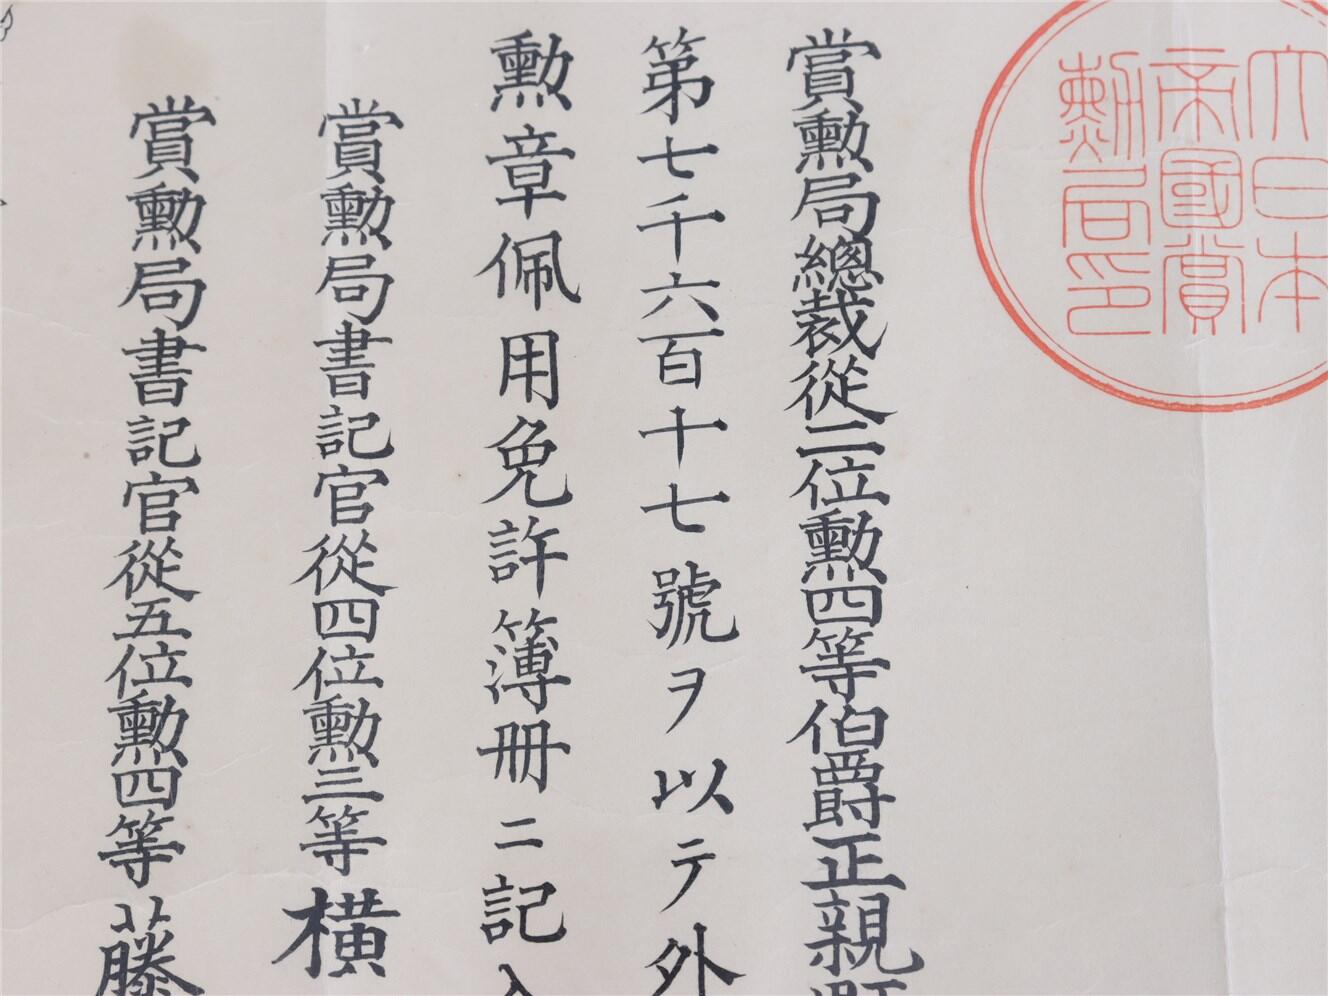 大日本
帝國賞
勲局印
賞勲局總裁從二位勲四等伯爵正親町
第七千六百十七號ヲ以テ外
勲章佩用免許簿冊ニ記入
賞勲局書記官從四位勲三等橫
賞勲局書記官從五位勲四等藤